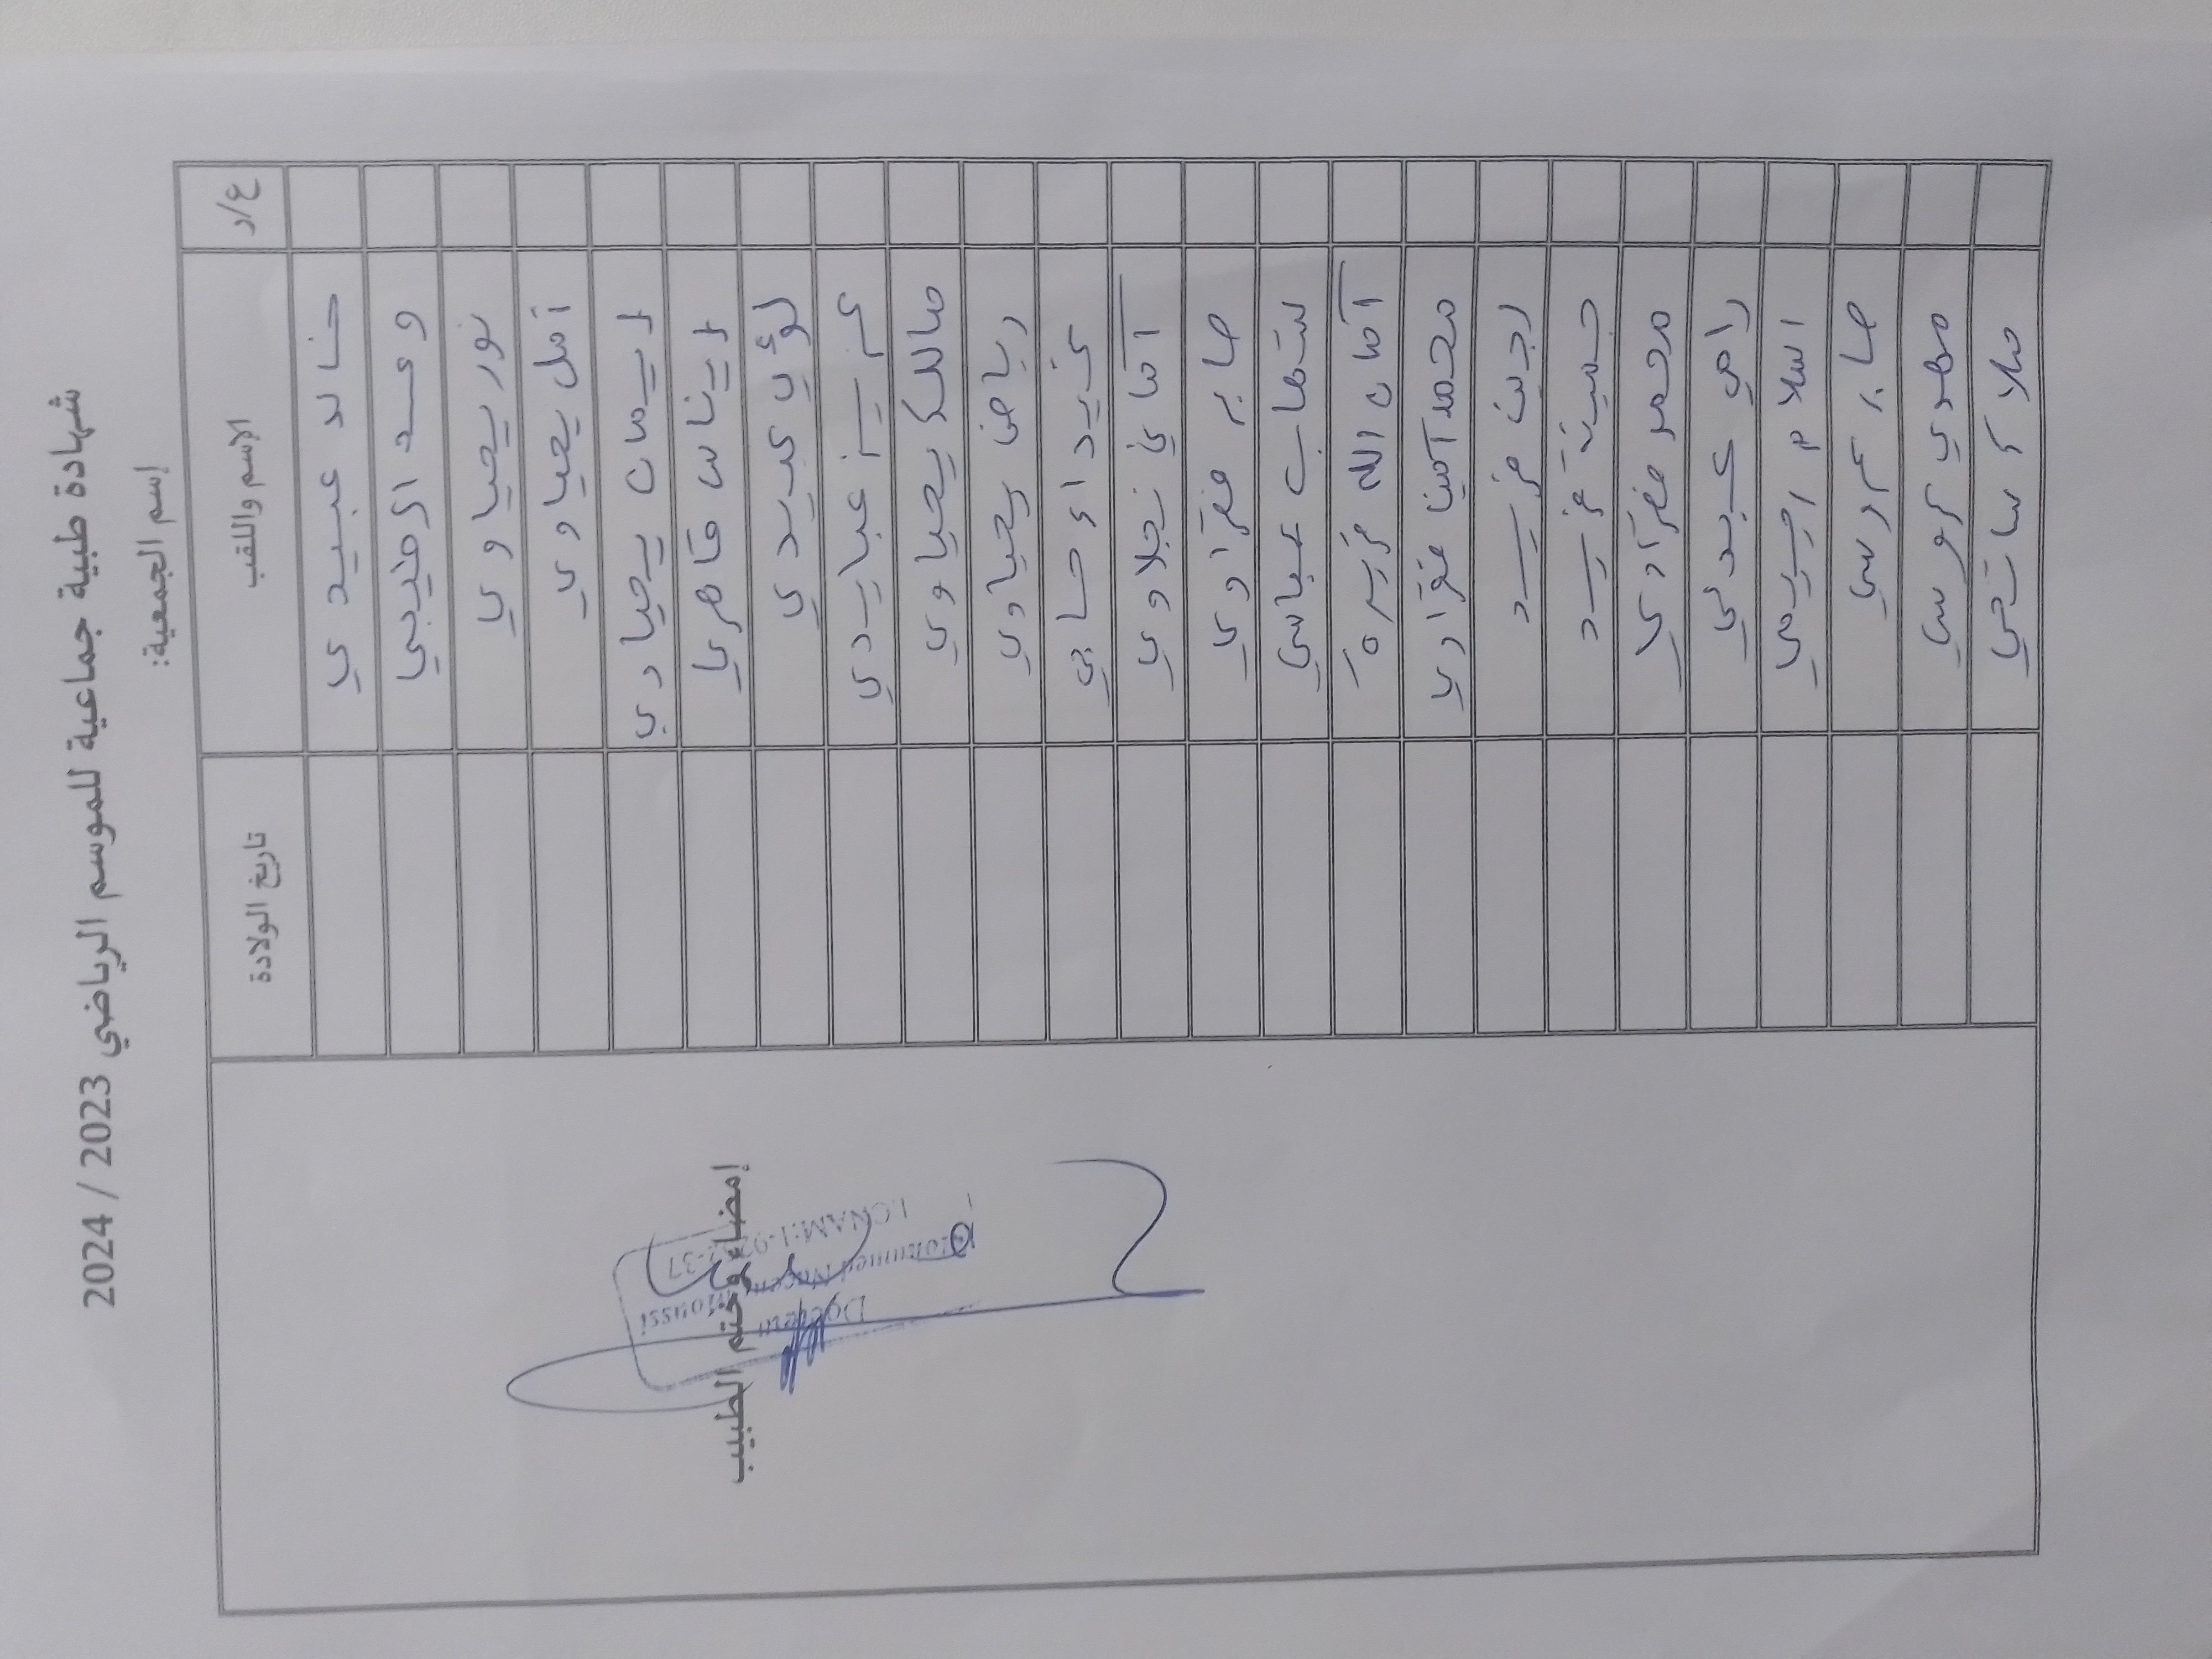 شهادة طبية جماعية للموسم الرياضي 2023 / 2024
إسم الجمعية:
ع/ر الإسم واللقب تاريخ الولادة
خالد عبيدي
وعد الرحيبي
نور يحياوي
أمل يحياوي
إيمان يحياوي
إيناس قاهري
لؤي عبيدي
عزيز عبايدي
مالك يحياوي
رياض يحياوي
حاجي
أماني نجلاوي
صابر مقراوي
شهاب عباسي
أمان الله
محمد أمين مقراوي
مزيد
مزيد
محمد مقراوي
رامي عبيدلي
اسلام
صابر عروسي
مهدي عروسي
ملاك ساتحي
إمضاء وختم الطبيب
Docteur
Mohamed Moussi